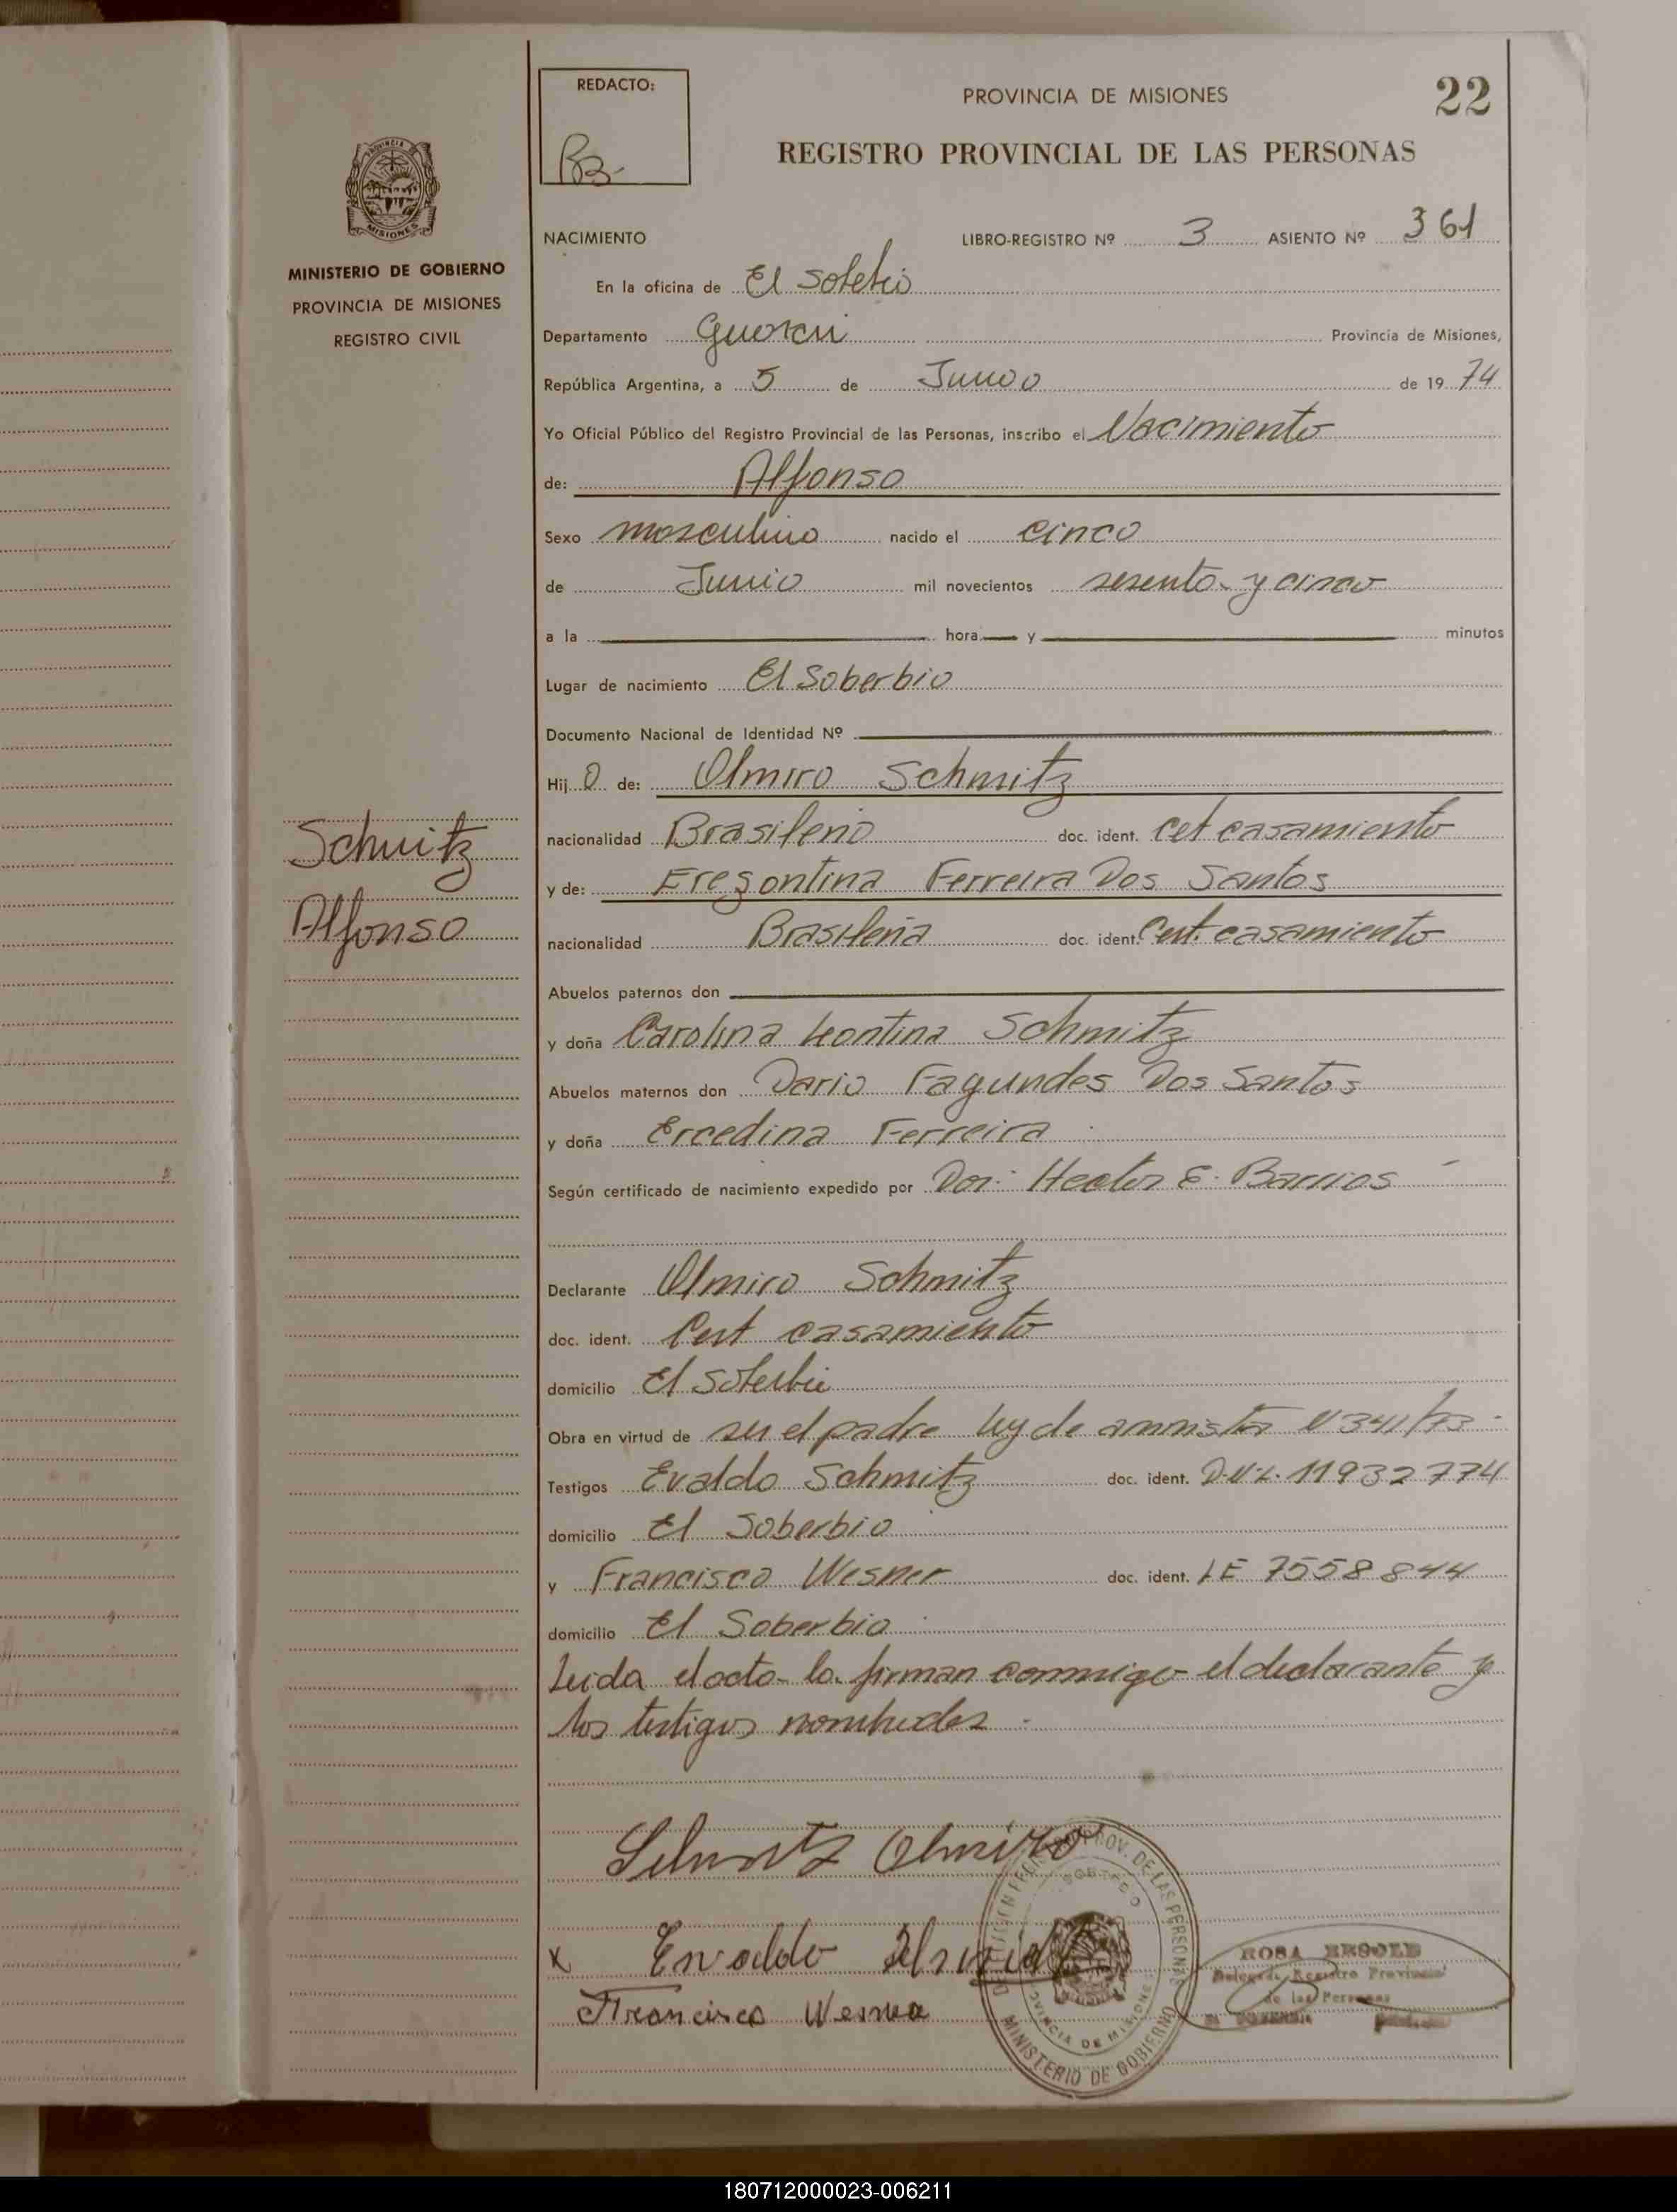 REDACTO:
PROVINCIA DE MISIONES
22
REGISTRO PROVINCIAL DE LAS PERSONAS
MISIONES
MINISTERIO DE GOBIERNO
PROVINCIA DE MISIONES
REGISTRO CIVIL
NACIMIENTO LIBRO-REGISTRO Nº 3 ASIENTO Nº 361
En la oficina de El Soberbio
Departamento Guarani Provincia de Misiones,
República Argentina, a 5 de Junio de 19 74
Yo Oficial Público del Registro Provincial de las Personas, inscribo el Nacimiento
de: Alfonso
Sexo masculino nacido el cinco
de Junio mil novecientos sesenta y cinco
a la hora y minutos
Lugar de nacimiento El Soberbio
Documento Nacional de Identidad Nº
Hij o de: Olmiro Schmitz
nacionalidad Brasileno doc. ident. Cet casamiento
y de: Eregontina Ferreira Dos Santos
nacionalidad Brasileña doc. ident. Cert. casamiento
Schmitz
Alfonso
Abuelos paternos don
y doña Carolina Leontina Schmitz
Abuelos maternos don Dario Fagundes Dos Santos
y doña Ercedina Ferreira
Según certificado de nacimiento expedido por Dor. Hector E. Barrios
Declarante Olmiro Schmitz
doc. ident. Cert casamiento
domicilio El Soberbio
Obra en virtud de ser el padre ley de amnistia N 341/73
Testigos Evaldo Schmitz doc. ident. D.N.I. 11932774
domicilio El Soberbio
y Francisco Wesner doc. ident. LE 7558844
domicilio El Soberbio
Leida el acta la firman conmigo el declarante y
los testigos nombrados
Schmitz Olmiro
x Evaldo
Francisco
PROV. DE LAS PERSONAS
PROVINCIA DE MISIONES
MINISTERIO DE GOBIERNO
ROSA
Registro Provincial
de las Personas
180712000023-006211